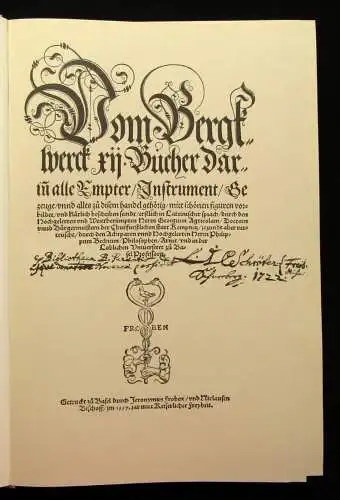 Vom Bergk-
werck xij Bücher dar-
iñ alle Empter / Instrument / Ge-
zeuge / vnnd alles zů disem handel gehörig / mitt schönen figuren vor-
bildet / vnd klärlich beschriben seindt / erstlich in Lateinischer sprach / durch den
Hochgelerten vnd Weittberümpten Herrn Georgium Agricolam / Doctorn
vnnd Bürgermeistern der Churfürstlichen statt Kempnitz / jezundt aber ver-
teüscht / durch den Achtparen vnnd Hochgelerten Herrn Philip-
pum Bechium / Philosophen / Artzet / vnd in der
Loblichen Vniuersitet zů Ba-
sel Professorn.
Bibliotheca
1722
FRO BEN
Getruckt zů Basel durch Jeronymus Froben / vnd Niclausen
Bischoff / im 1557. jar mitt Keiserlicher Freyheit.